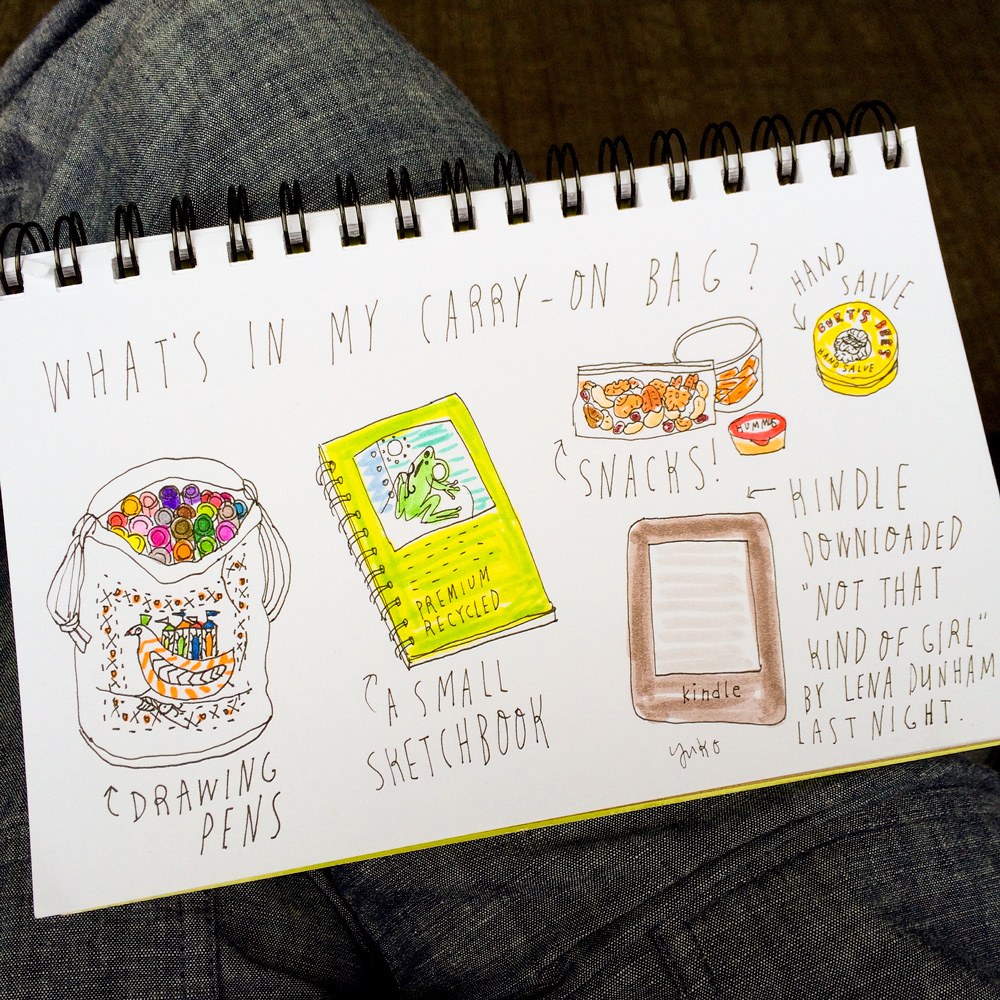 WHAT'S IN MY CARRY-ON BAG?
HAND
SALVE
BURT'S BEES
HAND SALVE
SNACKS!
HUMMUS
PREMIUM
RECYCLED
A SMALL
SKETCHBOOK
DRAWING
PENS
kindle
KINDLE
DOWNLOADED
"NOT THAT
KIND OF GIRL"
BY LENA DUNHAM
LAST NIGHT.
yuko